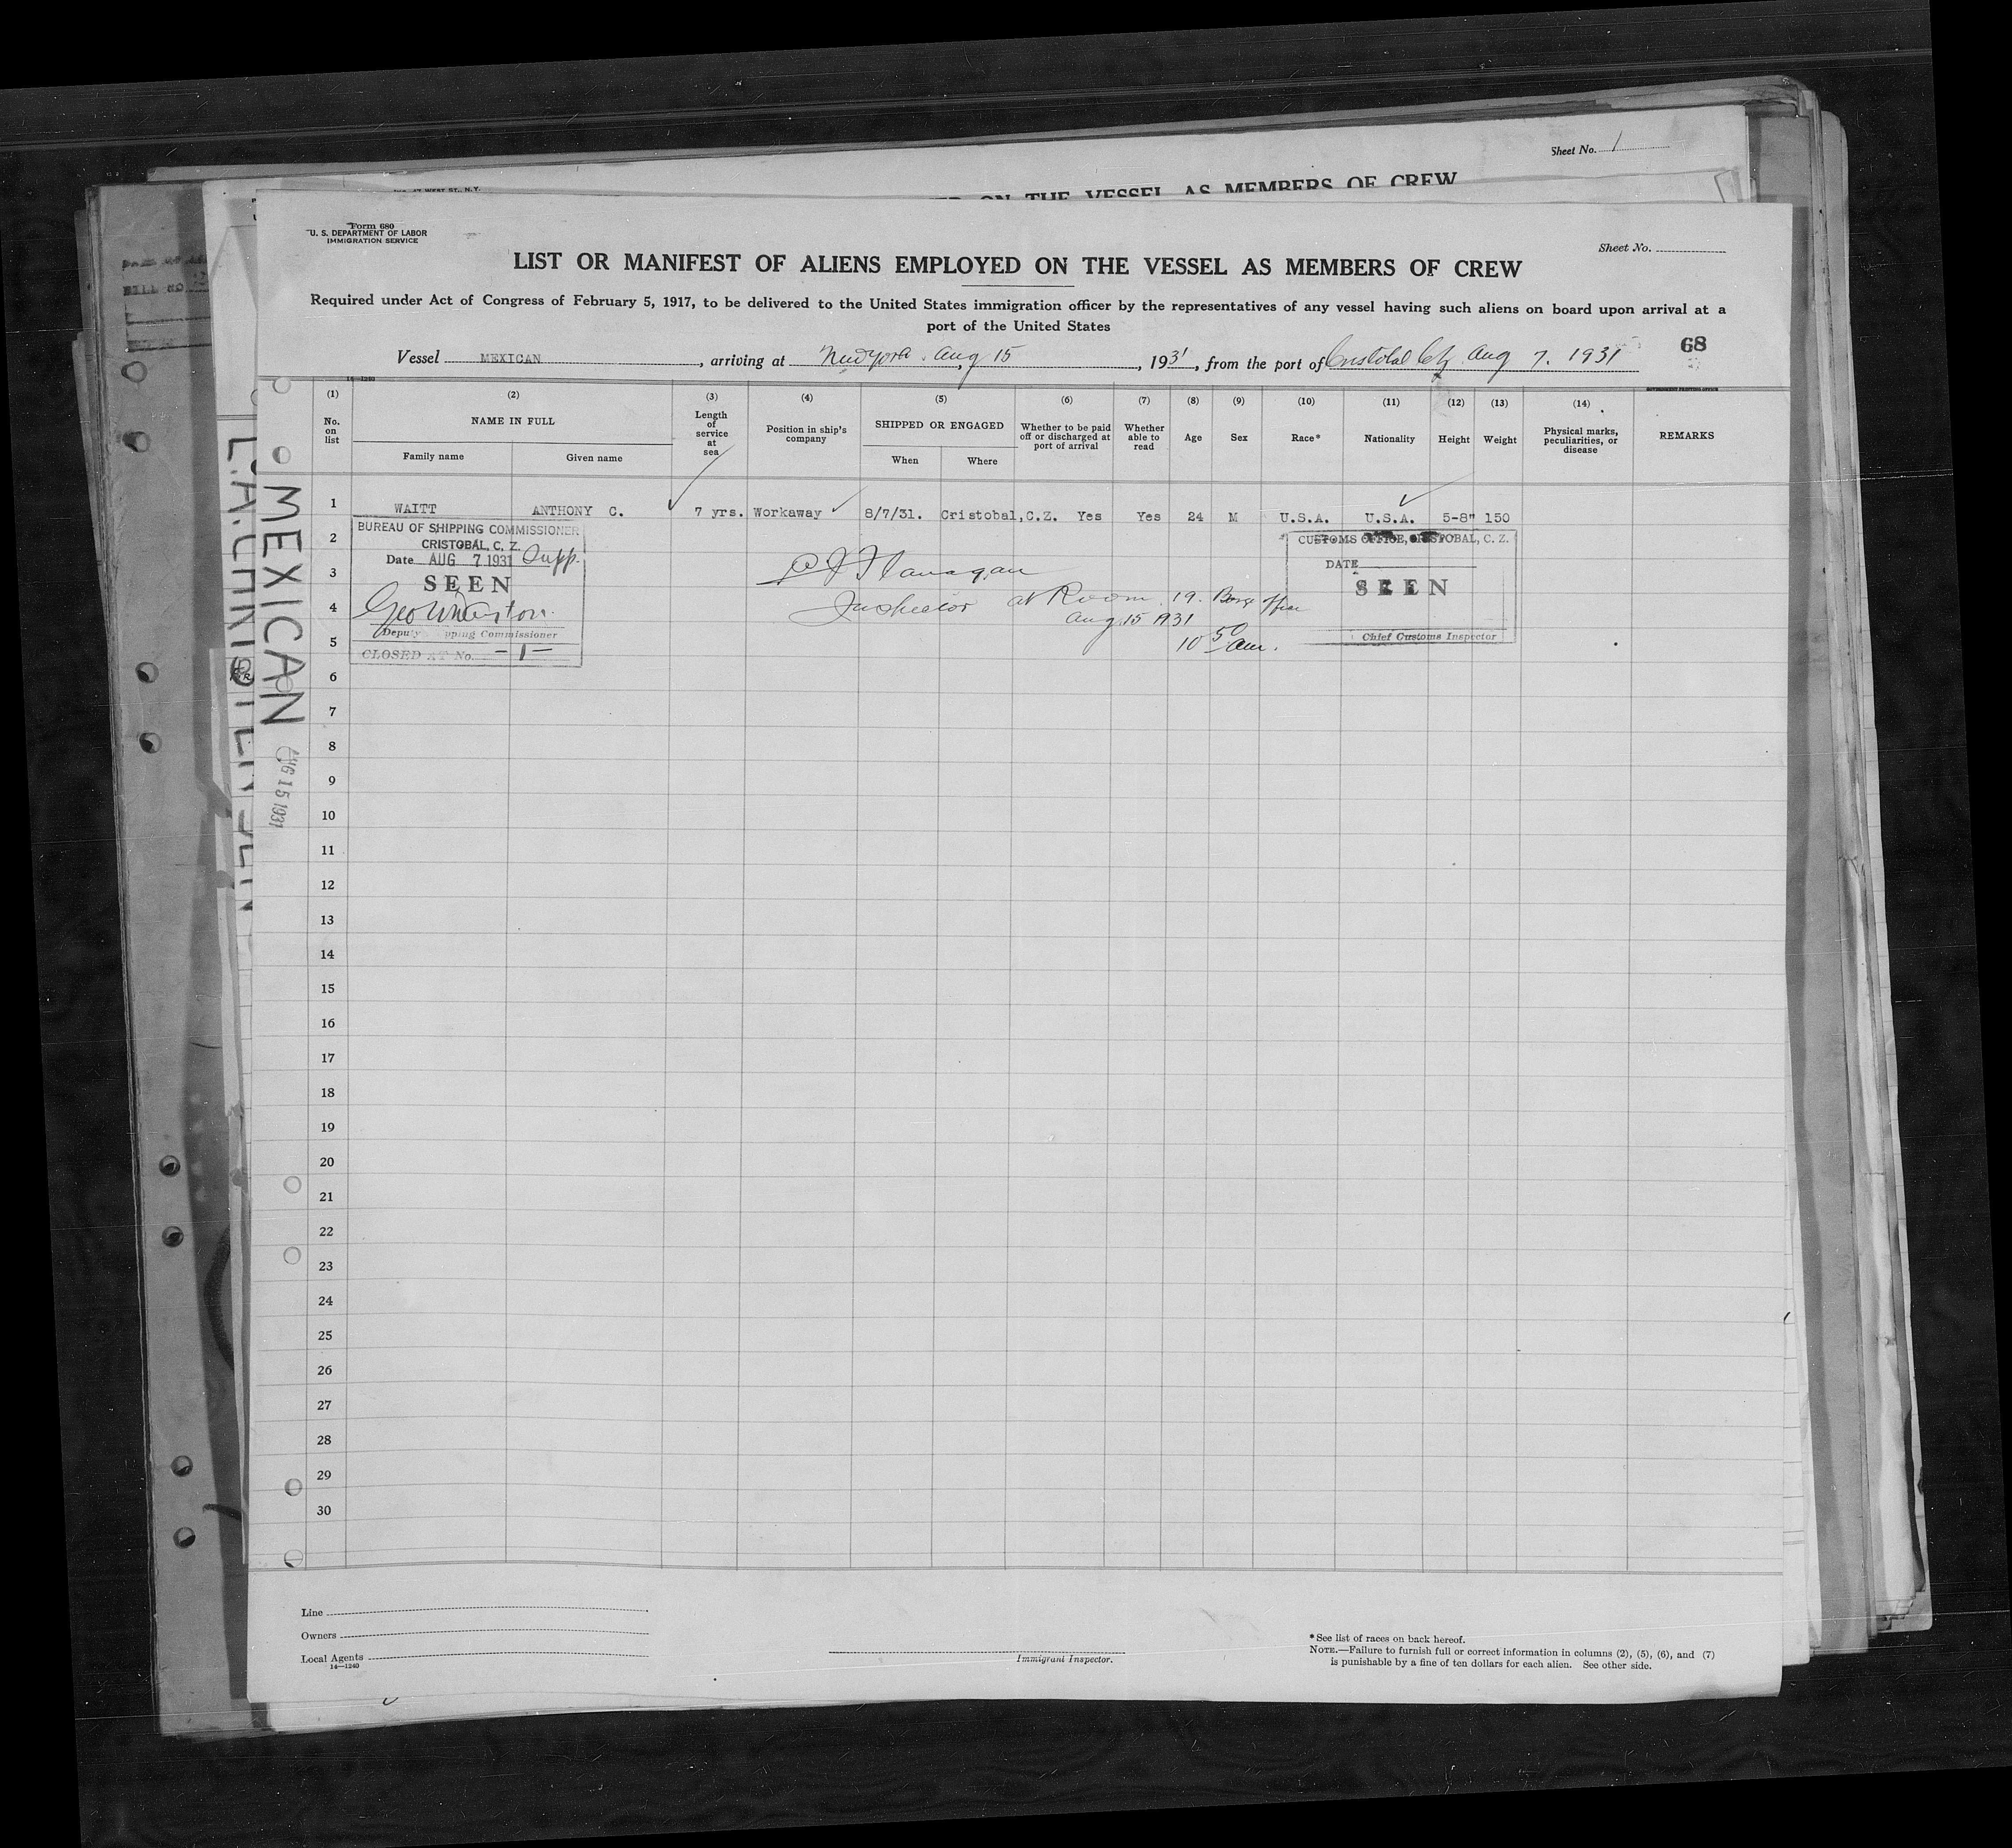 Sheet No. 1
ON THE VESSEL AS MEMBERS OF CREW
Form 680
U. S. DEPARTMENT OF LABOR
IMMIGRATION SERVICE
Sheet No.
LIST OR MANIFEST OF ALIENS EMPLOYED ON THE VESSEL AS MEMBERS OF CREW
Required under Act of Congress of February 5, 1917, to be delivered to the United States immigration officer by the representatives of any vessel having such aliens on board upon arrival at a
port of the United States
68
Vessel MEXICAN, arriving at New York, Aug 15, 1931, from the port of Cristobal Aug 7. 1931
14—1240
(1) (2) (3) (4) (5) (6) (7) (8) (9) (10) (11) (12) (13) (14)
No. on list
NAME IN FULL
Family name Given name
Length of service at sea
Position in ship's company
SHIPPED OR ENGAGED
When Where
Whether to be paid off or discharged at port of arrival
Whether able to read
Age
Sex
Race*
Nationality
Height
Weight
Physical marks, peculiarities, or disease
REMARKS
1 WAITT ANTHONY C. 7 yrs. Workaway 8/7/31. Cristobal, C.Z. Yes Yes 24 M U.S.A. U.S.A. 5-8" 150
BUREAU OF SHIPPING COMMISSIONER
CRISTOBAL, C. Z.
Date AUG 7 1931 Supp.
SEEN
Deputy Shipping Commissioner
CLOSED AT No. -1-
Flanagan
Inspector at Room 19. Barge Office
Aug 15 1931
10 50 am.
CUSTOMS OFFICE, CRISTOBAL, C. Z.
DATE
SEEN
Chief Customs Inspector
2
3
4
5
6
7
8
9
10
11
12
13
14
15
16
17
18
19
20
21
22
23
24
25
26
27
28
29
30
MEXICAN
AUG 15 1931
Line
Owners
Local Agents
14—1240
Immigrant Inspector.
*See list of races on back hereof.
NOTE.—Failure to furnish full or correct information in columns (2), (5), (6), and (7)
is punishable by a fine of ten dollars for each alien. See other side.